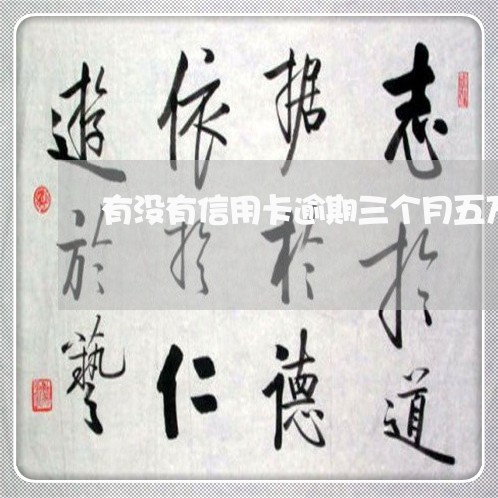 志於道
据於德
依於仁
遊於藝
有没有信用卡逾期三个月五